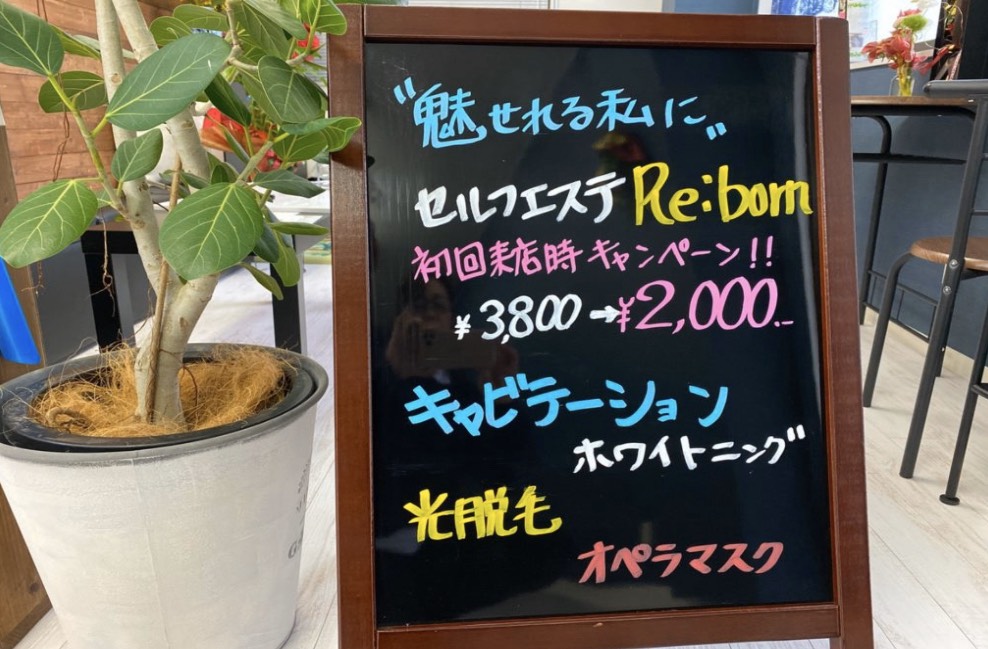 "魅せれる私に"
セルフエステ Re:born
初回来店時キャンペーン!!
¥3,800→¥2,000.-
キャビテーション
ホワイトニング
光脱毛
オペラマスク